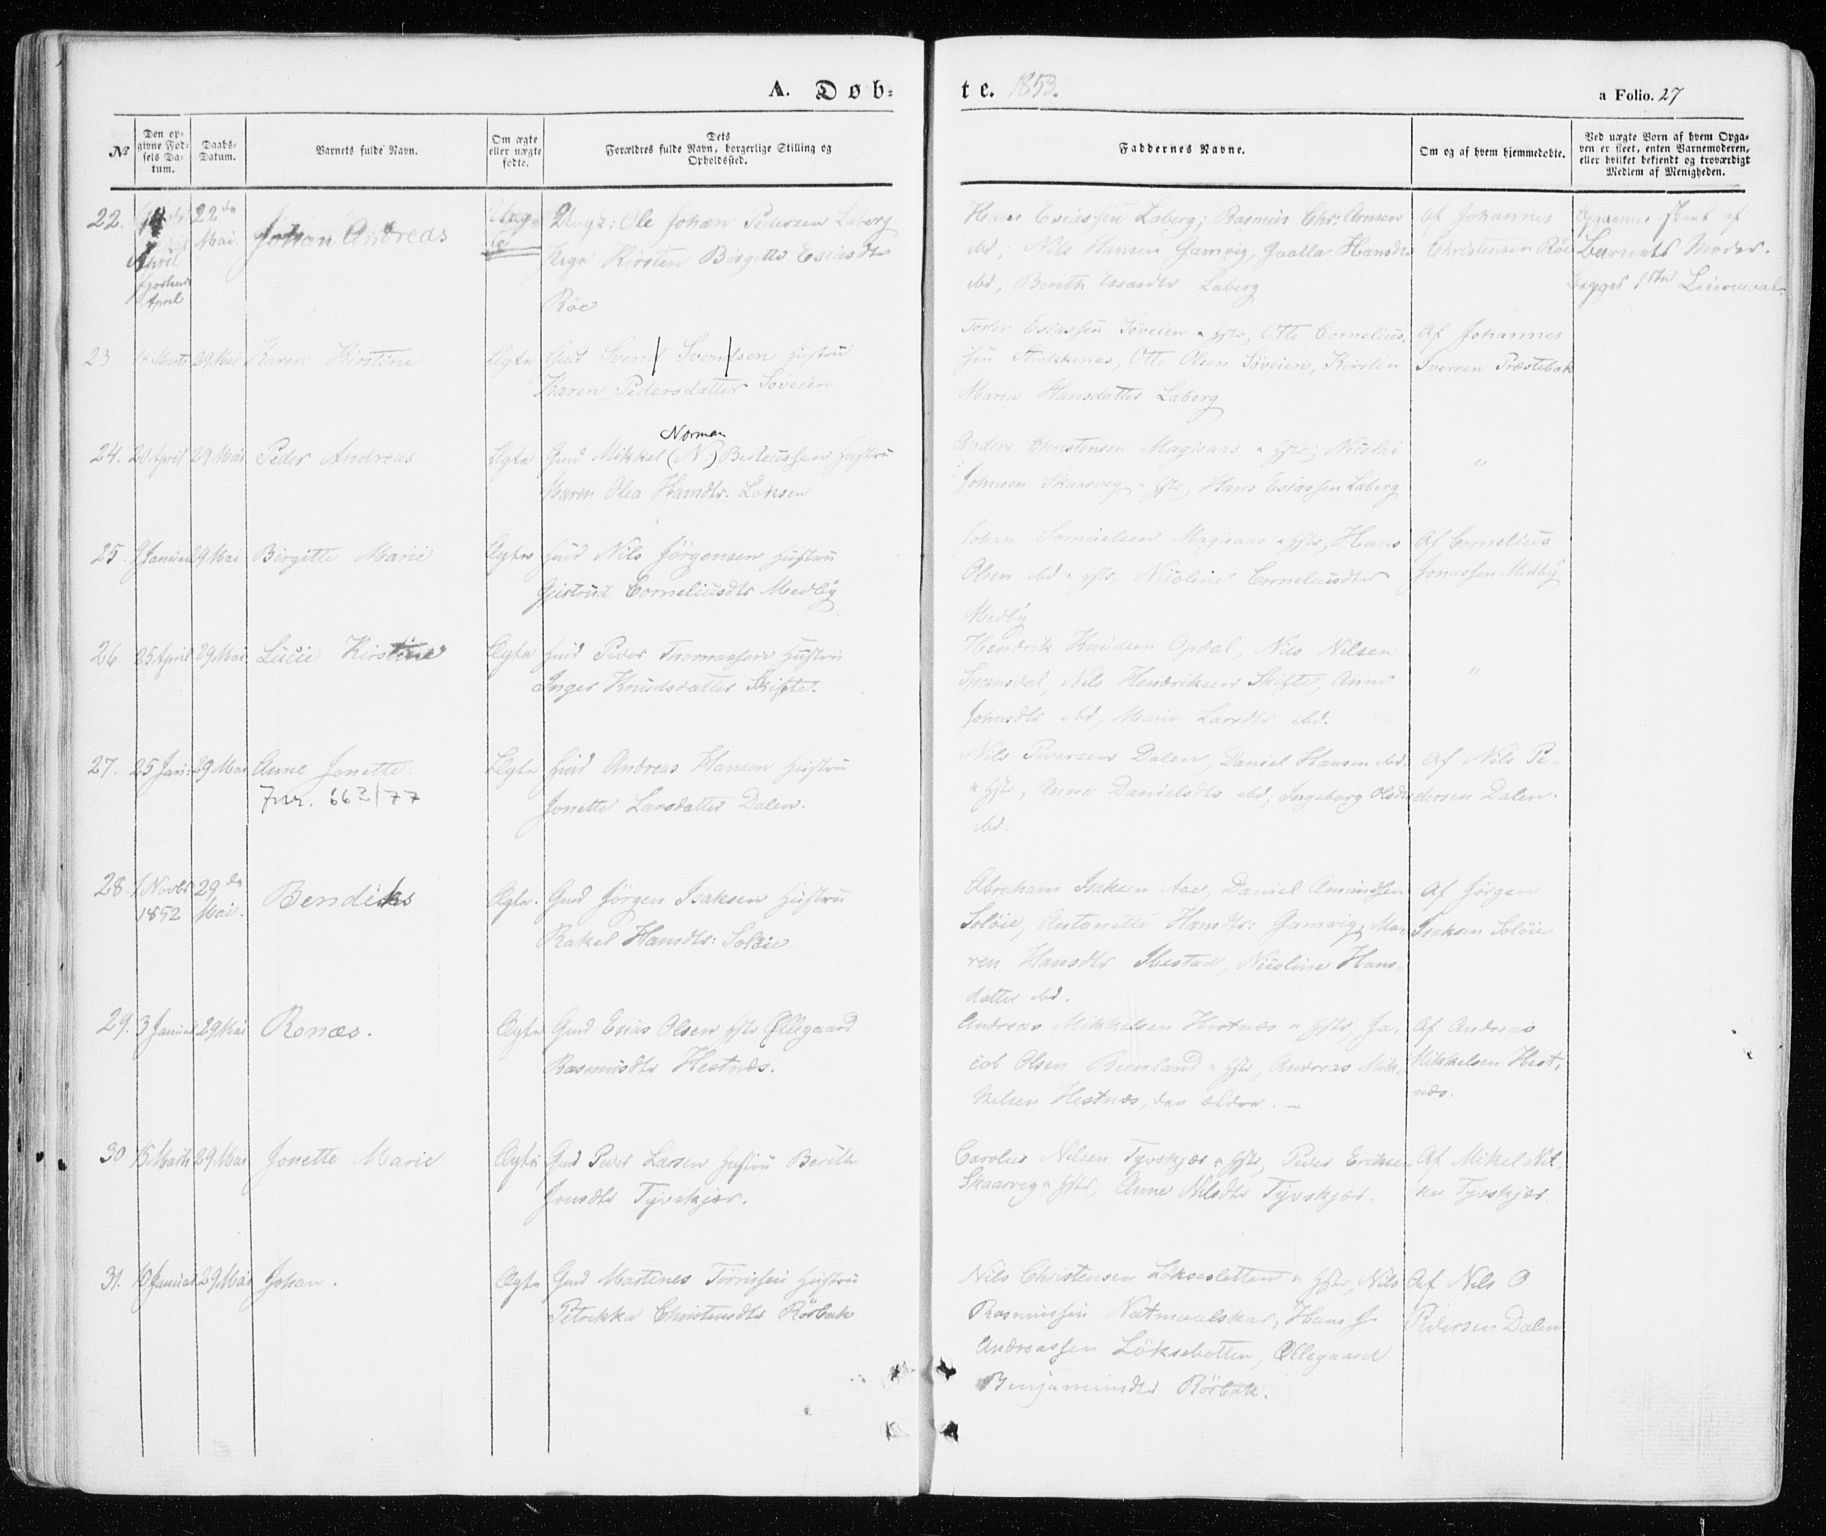 A. Døb-te. 1853.
a Folio. 27
No
Den opgivne Fødsels Datum.
Daabs-Datum.
Barnets fulde Navn.
Om ægte eller uægte fødte.
Dets Forældres fulde Navn, borgerlige Stilling og Opholdssted.
Faddernes Navne.
Om og af hvem hjemmedøbte.
Ved uægte Børn af hvem Opgaven er skeet, enten Barnemoderen, eller hvilket bekjendt og troværdigt Medlem af Menigheden.
22. April 22de Mai. Johan Andreas
Ungk: Ole Johan Pedersen Laberg
Pige Kirsten Birgitte Esiasdtr
Röe
Hans Esiassen Laberg; Rasmus Chr: Arnesen
ibd; Nils Hansen Gamvig, Hansdtr
ibd, Berith Esiasdtr Laberg
Af Johannes
Christensen Röe
af
Barnets Moder.
23 29 Mai Karen Kirstine Ægte Gmd Svend Svendsen Hustru
Karen Pedersdatter Söveien
Esiassen Söveien & Hstr; Otte Cornelius-
sen, Otte Olsen Söveien, Kirsten
Marie Hansdatter Laberg
Af Johannes
Iversen Præstebak
24. 20 April 29 Mai. Peder Andreas Ægte Gmd Mikkel (N.) Berteussen Hustru
Norman
Maren Olea Hansdtr: Løksen
Anders Christensen Magisaas & Hstr; Nicolai
Johnsen Skaarvig & Hstr, Hans Esiassen Laberg
"
25. Januar 29 Mai Birgitte Marie Ægte Huusmd Nils Jörgensen Hustru
Gjertrud Corneliusdtr Medby
Johan Samuelsen Magisaas & Hstr, Hans
Olsen ibd & Hstr, Nicoline Corneliusdtr
Medby
Af Cornelius
Jonassen Medby
26. 25 April 29 Mai. Lucie Kirstine Ægte Huusmd Peder Thomassen Hustru
Inger Knudsdatter Skifte.
Hendrik Knudsen Opdal, Nils Nilsen
Spansdal, Nils Hendriksen Skifte, Anne
Johnsdtr ibd, Marie Larsdtr ibd.
"
27. 25 Jan: 29 Mai Anne Jonette. Ægte Huusmd Andreas Hansen Hustru
Jnr. 662/77
Jonette Larsdatter Dalen.
Nils Pedersen Dalen, Daniel Hansen ibd.
& Hstr, Anne Danielsdtr ibd, Ingeborg Olsdtr
ibd.
Af Nils Pe-
dersen Dalen.
28. 1 Novbr 1852 29de Mai. Bendiks Ægte. Gmd Jörgen Isaksen Hustru
Rakel Hansdtr: Solöie
Abraham Isaksen Aae, Daniel Amundsen
Solöie, Antonette Hansdtr: Gamvig, Ma-
ren Hansdtr Ibestad, Nicoline Hans-
datter ibd.
Af Jörgen
Isaksen Solöie
29. 3 Januar 29 Mai Ronæs. Ægte Gmd Esias Olsen Hstr Øllegaard
Rasmusdtr Hestnæs.
Andreas Mikkelsen Hestnæs & Hstr, Ja-
cob Olsen & Hstr, Andreas Mik-
kelsen Hestnæs, den ældre. —
Af Andreas
Mikkelsen Hest-
næs.
30 15 Marts 29 Mai Jonette Marie Ægte Gmd Peder Larsen Hustru Berith
Jonsdtr Tyvskjær.
Carolus Nilsen Tyvskjær & Hstr, Peder Eriksen
Skaarvig & Hstr, Anne Nilsdtr Tyvskjær.
Af Mikel Nil-
sen Tyvskjær.
31. 10 Januar 29 Mai Johan. Ægte Gmd Martines Törrissen Hustru
Petrikka Christensdtr Rörbak
Nils Christensen Löksesletten & Hstr, Nils
Rasmussen Natmaalskar, Hans J.
Andreassen Löksebotten, Øllegaard
Benjaminsdtr Rörbak.
Af Nils O
Pedersen Dalen